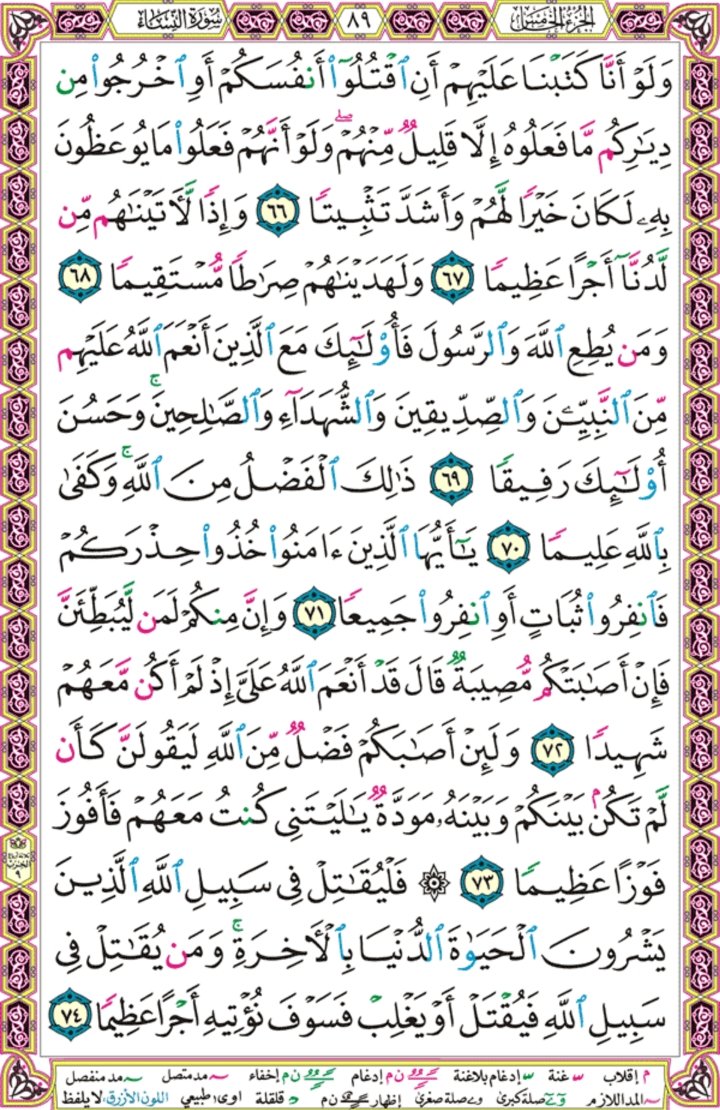 سورة النساء ٨٩ الجزء الخامس
وَلَوْ أَنَّا كَتَبْنَا عَلَيْهِمْ أَنِ ٱقْتُلُوٓا۟ أَنفُسَكُمْ أَوِ ٱخْرُجُوا۟ مِن
دِيَـٰرِكُم مَّا فَعَلُوهُ إِلَّا قَلِيلٌ مِّنْهُمْ ۖ وَلَوْ أَنَّهُمْ فَعَلُوا۟ مَا يُوعَظُونَ
بِهِۦ لَكَانَ خَيْرًا لَّهُمْ وَأَشَدَّ تَثْبِيتًا ٦٦ وَإِذًا لَّـَٔاتَيْنَـٰهُم مِّن
لَّدُنَّآ أَجْرًا عَظِيمًا ٦٧ وَلَهَدَيْنَـٰهُمْ صِرَٰطًا مُّسْتَقِيمًا ٦٨
وَمَن يُطِعِ ٱللَّهَ وَٱلرَّسُولَ فَأُو۟لَـٰٓئِكَ مَعَ ٱلَّذِينَ أَنْعَمَ ٱللَّهُ عَلَيْهِم
مِّنَ ٱلنَّبِيِّـۧنَ وَٱلصِّدِّيقِينَ وَٱلشُّهَدَآءِ وَٱلصَّـٰلِحِينَ ۚ وَحَسُنَ
أُو۟لَـٰٓئِكَ رَفِيقًا ٦٩ ذَٰلِكَ ٱلْفَضْلُ مِنَ ٱللَّهِ ۚ وَكَفَىٰ
بِٱللَّهِ عَلِيمًا ٧٠ يَـٰٓأَيُّهَا ٱلَّذِينَ ءَامَنُوا۟ خُذُوا۟ حِذْرَكُمْ
فَٱنفِرُوا۟ ثُبَاتٍ أَوِ ٱنفِرُوا۟ جَمِيعًا ٧١ وَإِنَّ مِنكُمْ لَمَن لَّيُبَطِّئَنَّ
فَإِنْ أَصَـٰبَتْكُم مُّصِيبَةٌ قَالَ قَدْ أَنْعَمَ ٱللَّهُ عَلَىَّ إِذْ لَمْ أَكُن مَّعَهُمْ
شَهِيدًا ٧٢ وَلَئِنْ أَصَـٰبَكُمْ فَضْلٌ مِّنَ ٱللَّهِ لَيَقُولَنَّ كَأَن
لَّمْ تَكُنۢ بَيْنَكُمْ وَبَيْنَهُۥ مَوَدَّةٌ يَـٰلَيْتَنِى كُنتُ مَعَهُمْ فَأَفُوزَ
فَوْزًا عَظِيمًا ٧٣ ۞ فَلْيُقَـٰتِلْ فِى سَبِيلِ ٱللَّهِ ٱلَّذِينَ
يَشْرُونَ ٱلْحَيَوٰةَ ٱلدُّنْيَا بِٱلْـَٔاخِرَةِ ۚ وَمَن يُقَـٰتِلْ فِى
سَبِيلِ ٱللَّهِ فَيُقْتَلْ أَوْ يَغْلِبْ فَسَوْفَ نُؤْتِيهِ أَجْرًا عَظِيمًا ٧٤
م إقلاب غنة إدغام بلاغنة ن م إدغام ن م إخفاء مد متصل مد منفصل
المد اللازم صلة كبرى صلة صغرى إظهار ن م قلقلة اوى: طبيعي اللون الأزرق: لا يلفظ